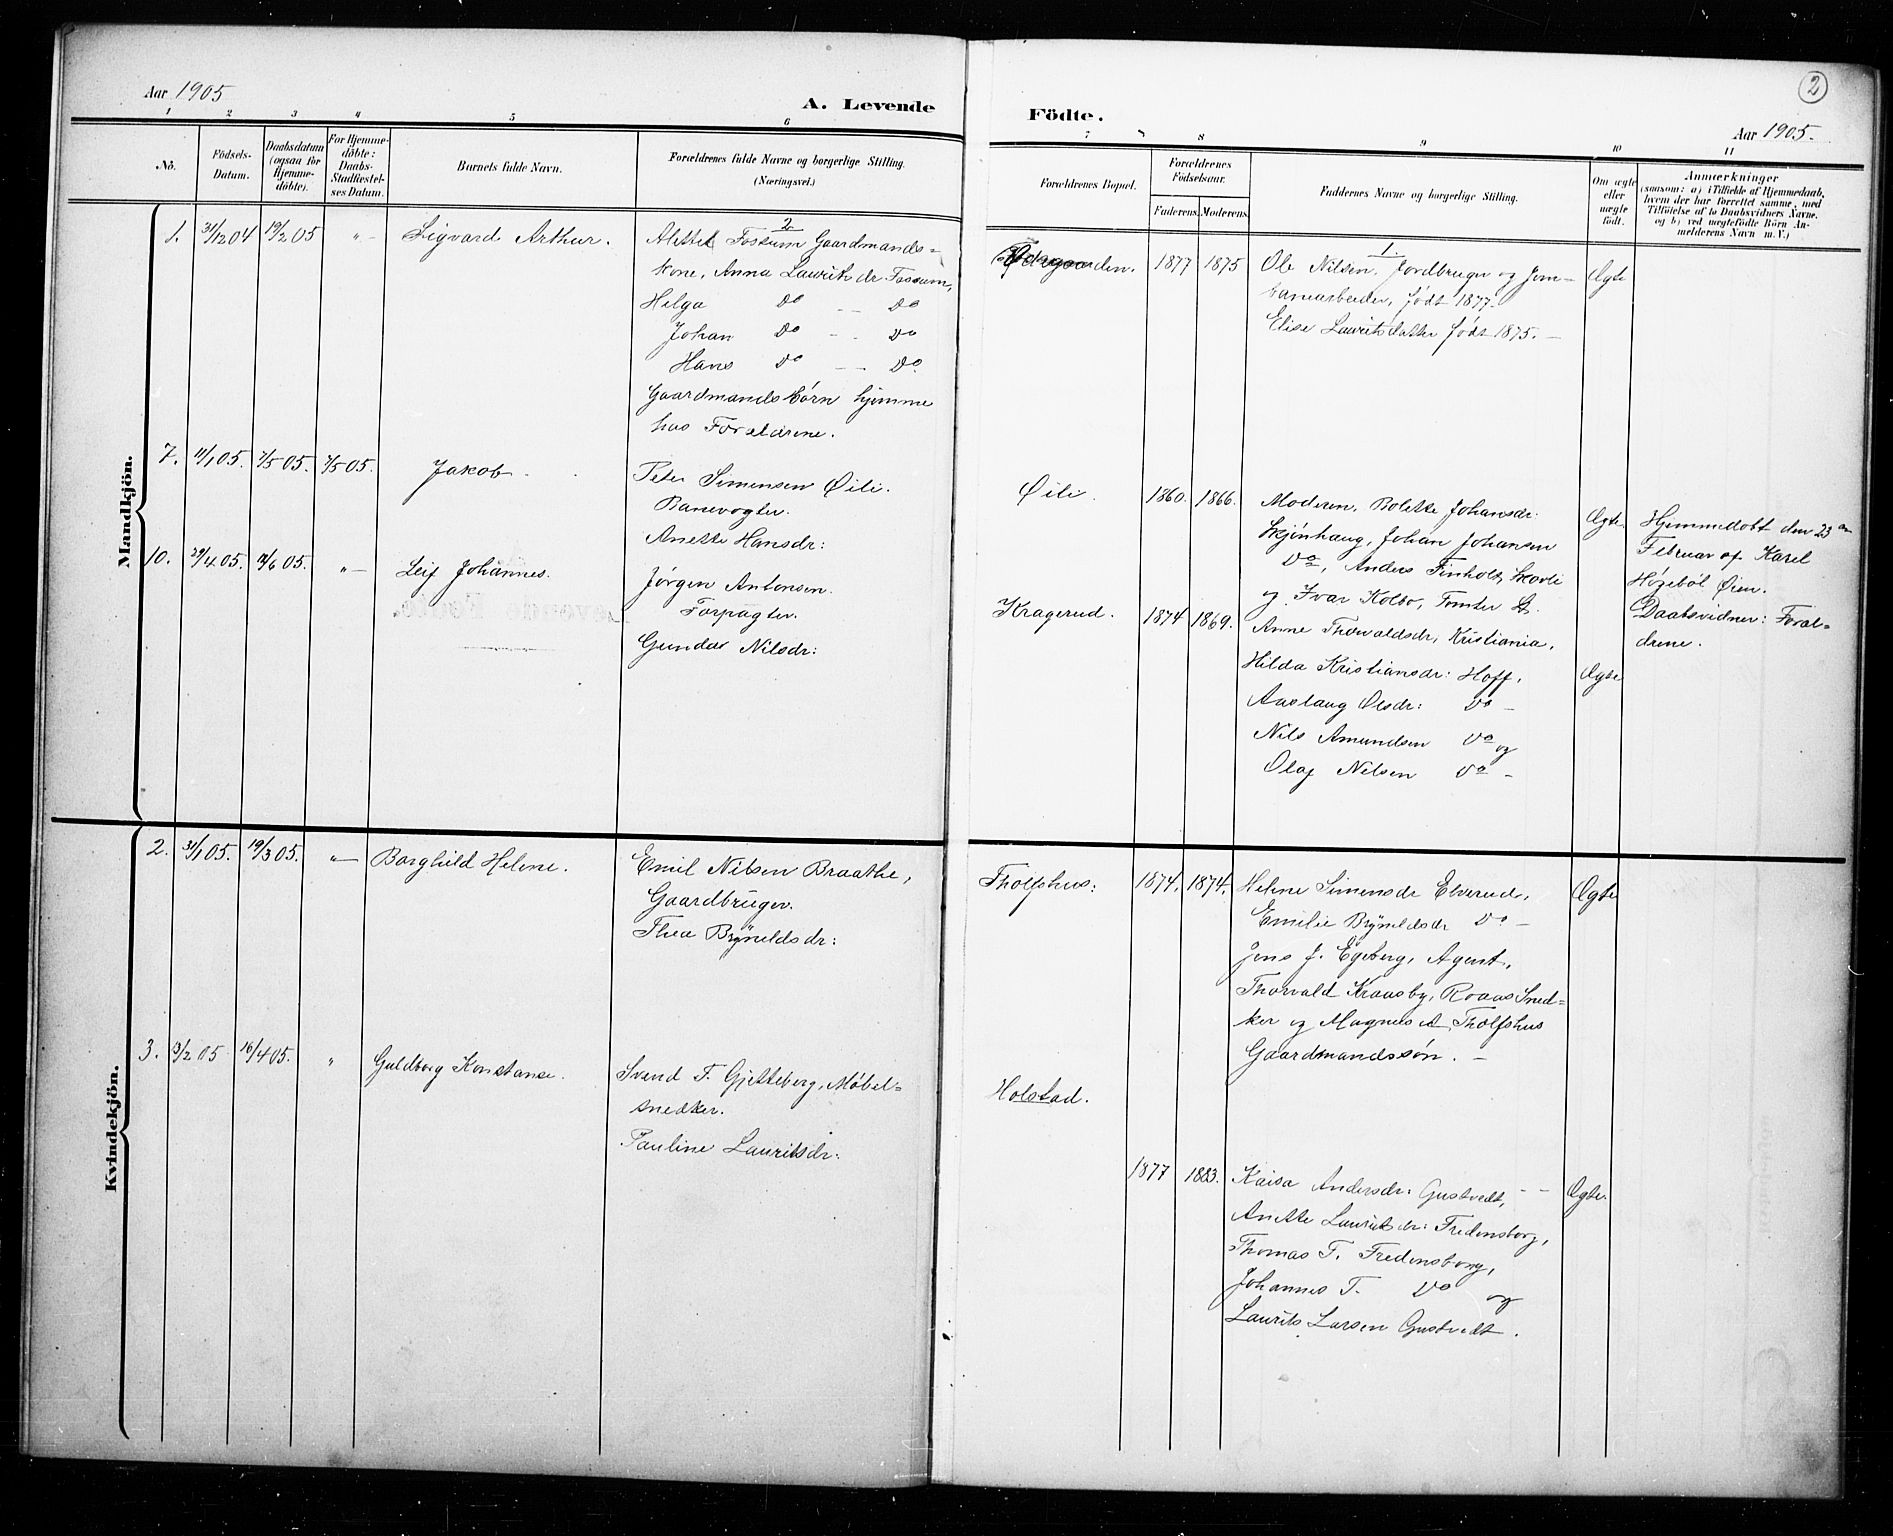 Aar 1905
A. Levende
1 2 3 4 5 6
Nô.
Födsels-
Datum.
Daabsdatum
(ogsaa for
Hjemme-
döbte).
For Hjemme-
döbte:
Daabs-
Stadfæstel-
ses Datum.
Barnets fulde Navn.
Forældrenes fulde Navne og borgerlige Stilling.
(Næringsvei.)
Mandkjön.
1. 31/12 04 19/2 05 " - Sigvard Arthur.
2
Alette Fossum Gaardmands-
kone, Anna Laurits dr Fossum,
Helga Do -- Do
Johan Do - . Do
Hans Do -- Do.
Gaardmandsbörn hjemme
hos Forældrene.
7. 11/1 05. 7/5 05. 7/5 05. Jakob
Peter Simensen Øili.
Banevogter.
Anette Hansdr:
10. 29/4 05. /6 05. " - Leif Johannes.
Jörgen Antonsen.
Forpagter.
Gunda Nilsdr:
Kvindekjön.
2. 31/1 05. 19/3 05. " - Borghild Helene.
Emil Nilsen Braathe,
Gaardbruger.
Thea Brÿnildsdr:
3. 13/2 05 16/4 05. " Guldborg Konstanse.
Svend T. Gjetteberg, Möbel-
snedker.
Pauline Lauritsdr:
2
Födte.
Aar 1905.
7 8 9 10 11
Forældrenes Bopæl.
Forældrenes
Födselsaar.
Faderens. Moderens.
Faddernes Navne og borgerlige Stilling.
Om ægte
eller
uægte
födt.
Anmærkninger
(saasom: a) i Tilfælde af Hjemmedaab,
hvem der har forrettet samme, med
Tilföielse af to Daabsvidners Navne,
og b) ved uægtefödte Börn An-
melderens Navn m.V.)
gaarden. 1877 1875
1.
Ole Nilsen, Jordbruger og Jern-
banearbeider, födt 1877.
Elise Lauritsdatter födt 1875. -
Ægte
Øili. 1860. 1866.
Moderen, Bolette Johansdr:
Skjönhaug, Johan Johansen
Do, Anders Finholt, Skovli
og Ivar Kolbo, Tomter St.
Ægte
Hjemmedöbt den 23de
Februar af Karel
Högeböl Øien.
Daabsvidner: Foræl-
drene.
Kragerud. 1874 1869.
Anne Thorvaldsdr, Kristiania,
Hilda Kristiansdr: Hoff,
Aaslaug Olsdr: Do -
Nils Amundsen Do og
Olaf Nilsen Do -
Ægte
Tholfshus: 1874. 1874.
Helene Simensdr Elverud,
Emilie Brÿnildsdr Do -
Jens J. Egeberg, Agent,
Thorvald Kraasby, Roaas Sned-
ker og Magnus A. Tholfshus
Gaardmandssön. -
Ægte
Holstad.
1877 1883.
Kaisa Andersdr: Gustvedt, --
Anette Lauritsdr: Fredensborg,
Thomas T. Fredensborg,
Johannes T. Do og
Laurits Larsen Gustvedt.
Ægte.